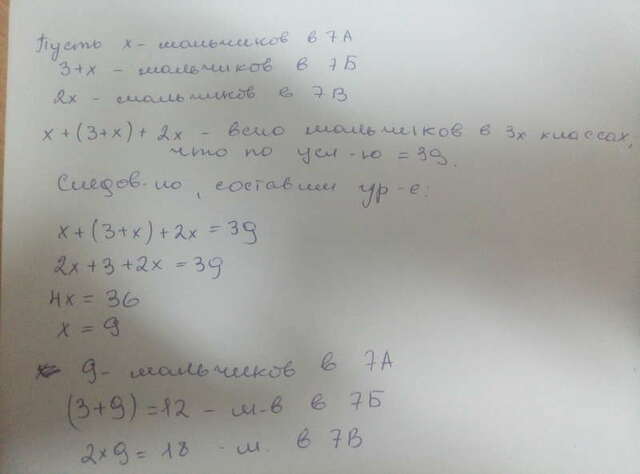 Пусть x - мальчиков в 7А
3+x - мальчиков в 7Б
2x - мальчиков в 7В
x+(3+x)+2x - всего мальчиков в 3х классах,
что по усл-ю = 39.
Следов-но, составим ур-е:
x+(3+x)+2x=39
2x+3+2x=39
4x=36
x=9
9- мальчиков в 7А
(3+9)=12 - м-в в 7Б
2×9=18 - м. в 7В